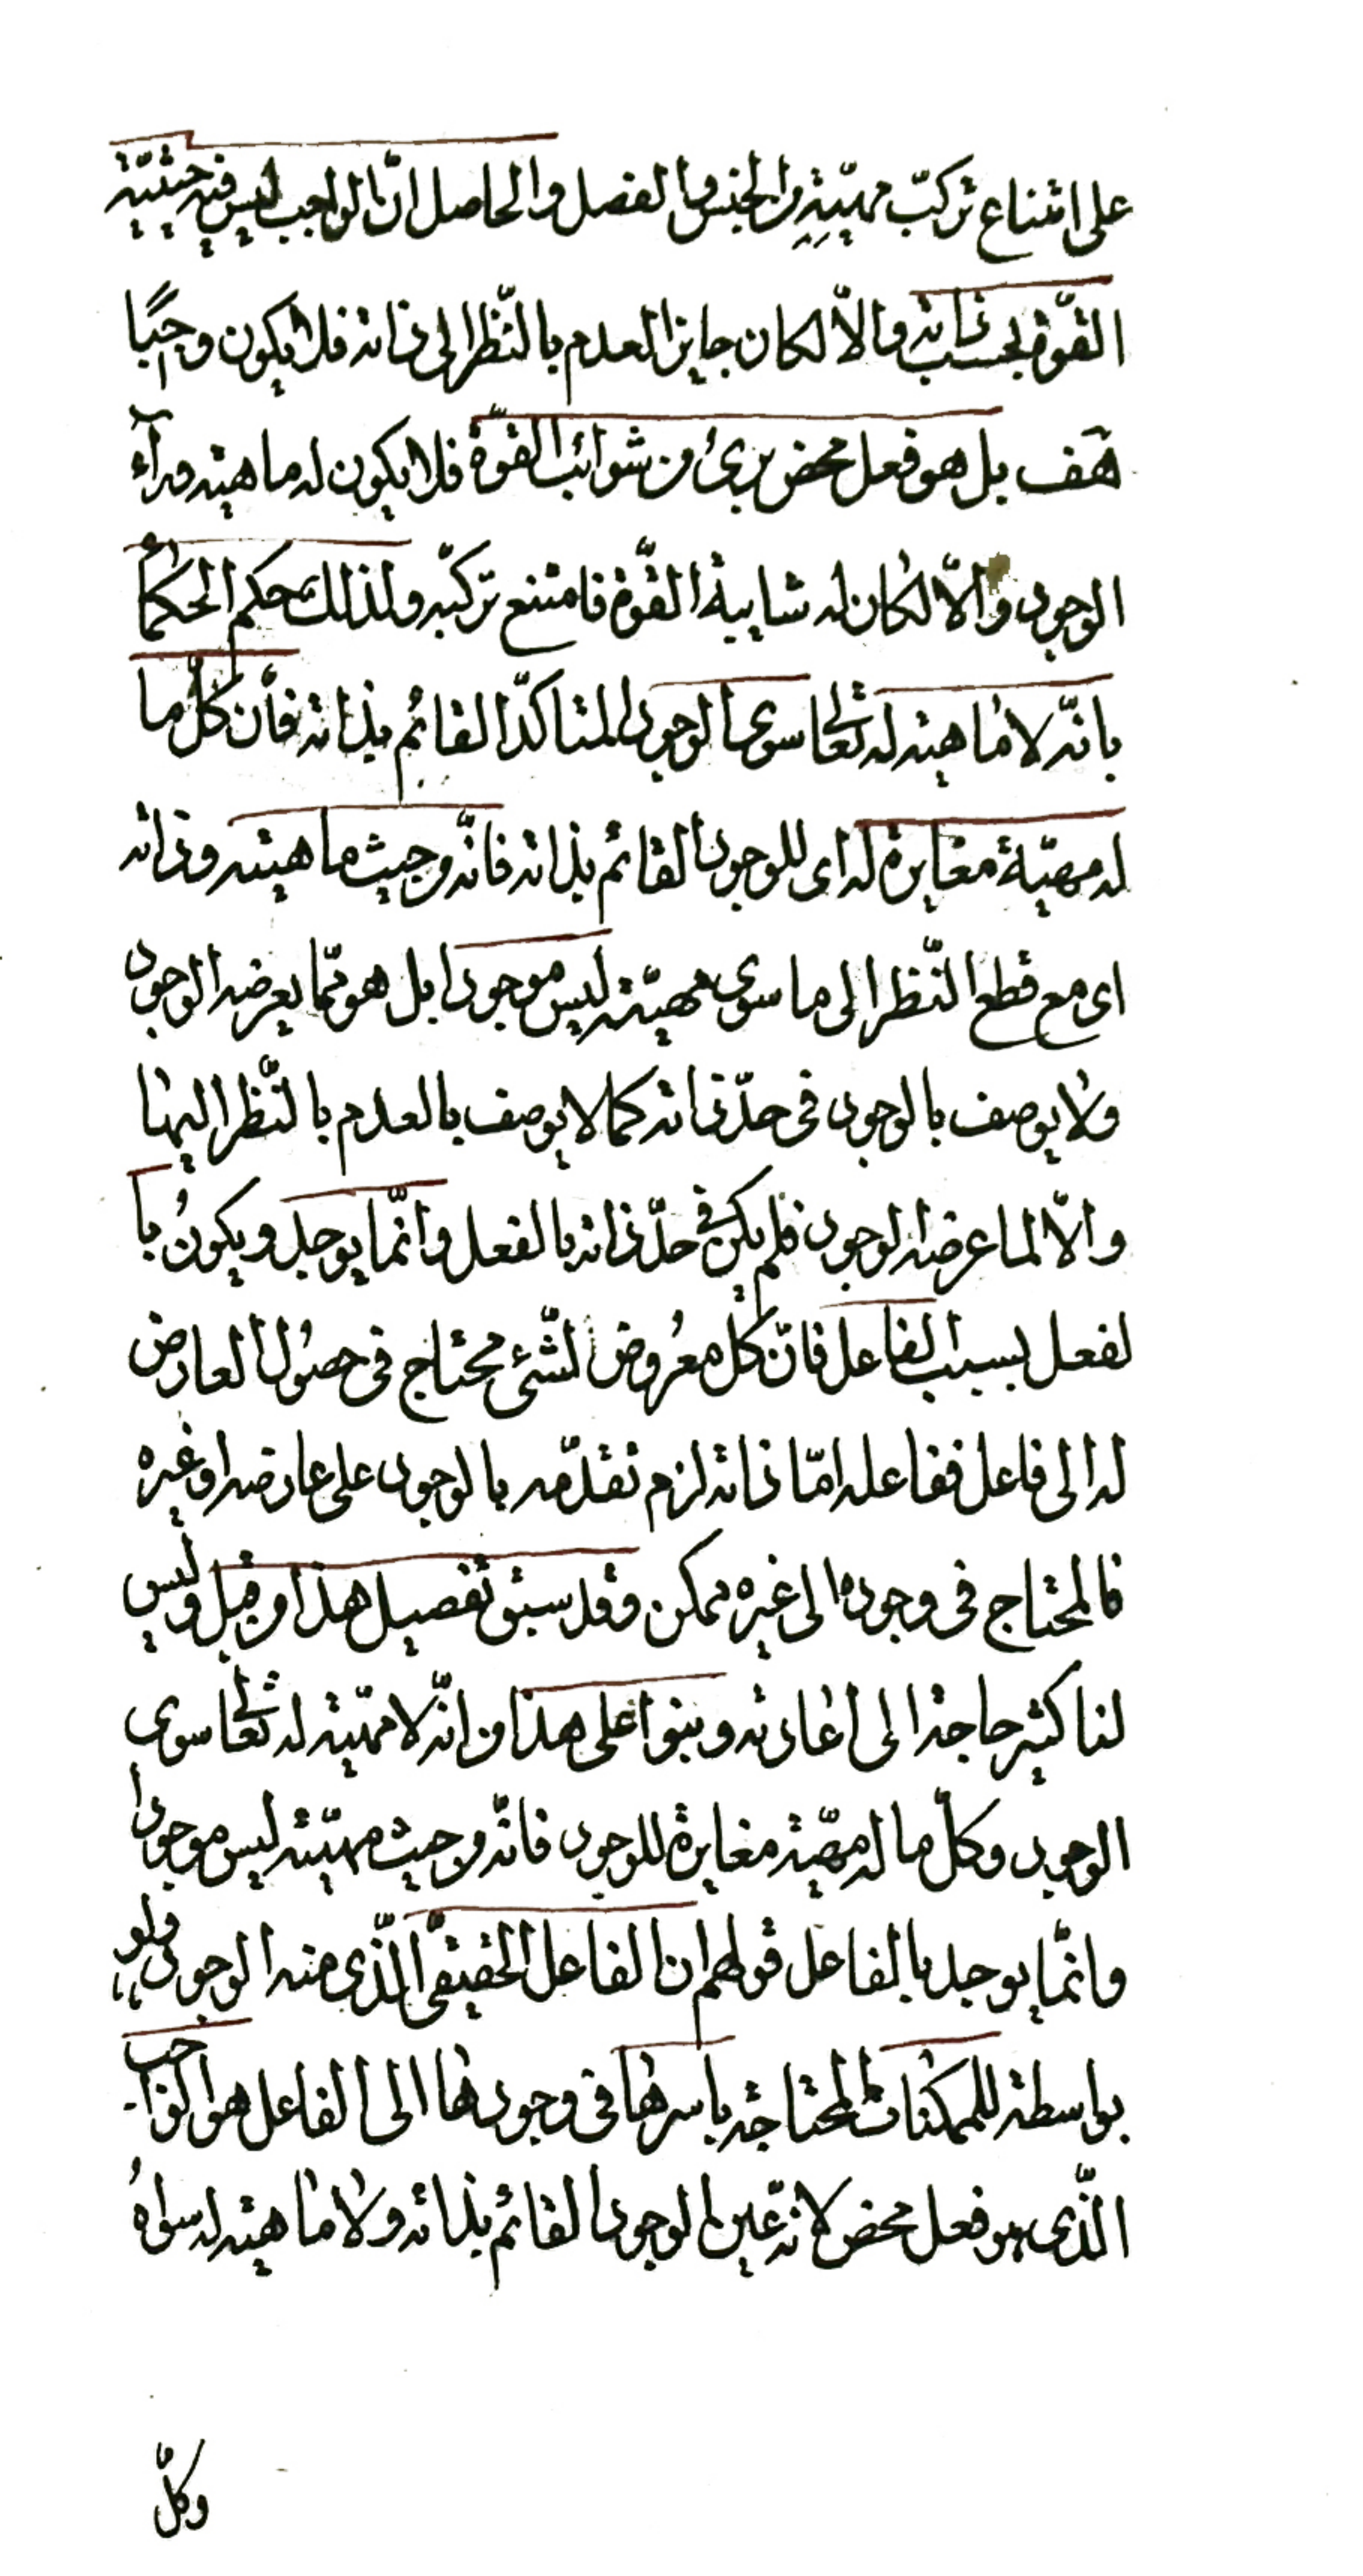 على امتناع تركّب مهيّته من الجنس والفصل والحاصل انّ الواجب ليس فيه حيثيّة
القوّة بحسب ذاته والّا لكان جايز العدم بالنّظر الى ذاته فلا يكون واجبًا
هف بل هو فعل محض برئ من شوائب القوّة فلا يكون له ماهيته ورآء
الوجود والّا لكان له شايبة القوّة فامتنع تركّبه ولذلك حكم الحكمآ
بانّه لا ماهية له تعالى سوى الوجود المتاكّد القائم بذاته فأن كلّ ما
له مهيّة مغايرة له اى للوجود القائم بذاته فانّه من حيث ماهيته وذاته
اى مع قطع النّظر الى ما سوى مهيّته ليس موجودا بل هو ممّا يعرضه الوجود
ولا يوصف بالوجود فى حدّ ذاته كما لا يوصف بالعدم بالنّظر اليها
والّا لما عرضه الوجود فلم يكن فى حدّ ذاته بالفعل وانّما يوجد ويكونُ با
لفعل بسبب الفاعل فانّ كلّ معرُوض لشئ محتاج فى حصُول العارض
له الى فاعل ففاعله امّا ذاته لزم تقدّمه بالوجود على عارضه او غيره
فالمحتاج فى وجوده الى غيره ممكن وقد سبق تفصيل هذا من قبل وليس
لنا كثير حاجة الى اعادته وبنوا على هذا من انّه لا مهّية له تعالى سوى
الوجود وكلّ ما له مهيّة مغايرة للوجود فانّه من حيث مهيّته ليس موجودا
وانّما يوجد بالفاعل قولهم ان الفاعل الحقيقىّ الّذى منه الوجود ولو
بواسطة للممكنات المحتاجة باسرها فى وجودها الى الفاعل هو الواجب
الّذى هو فعل محض لانّه عين الوجود القائم بذاته ولا ماهية له سواهُ
وكلّ